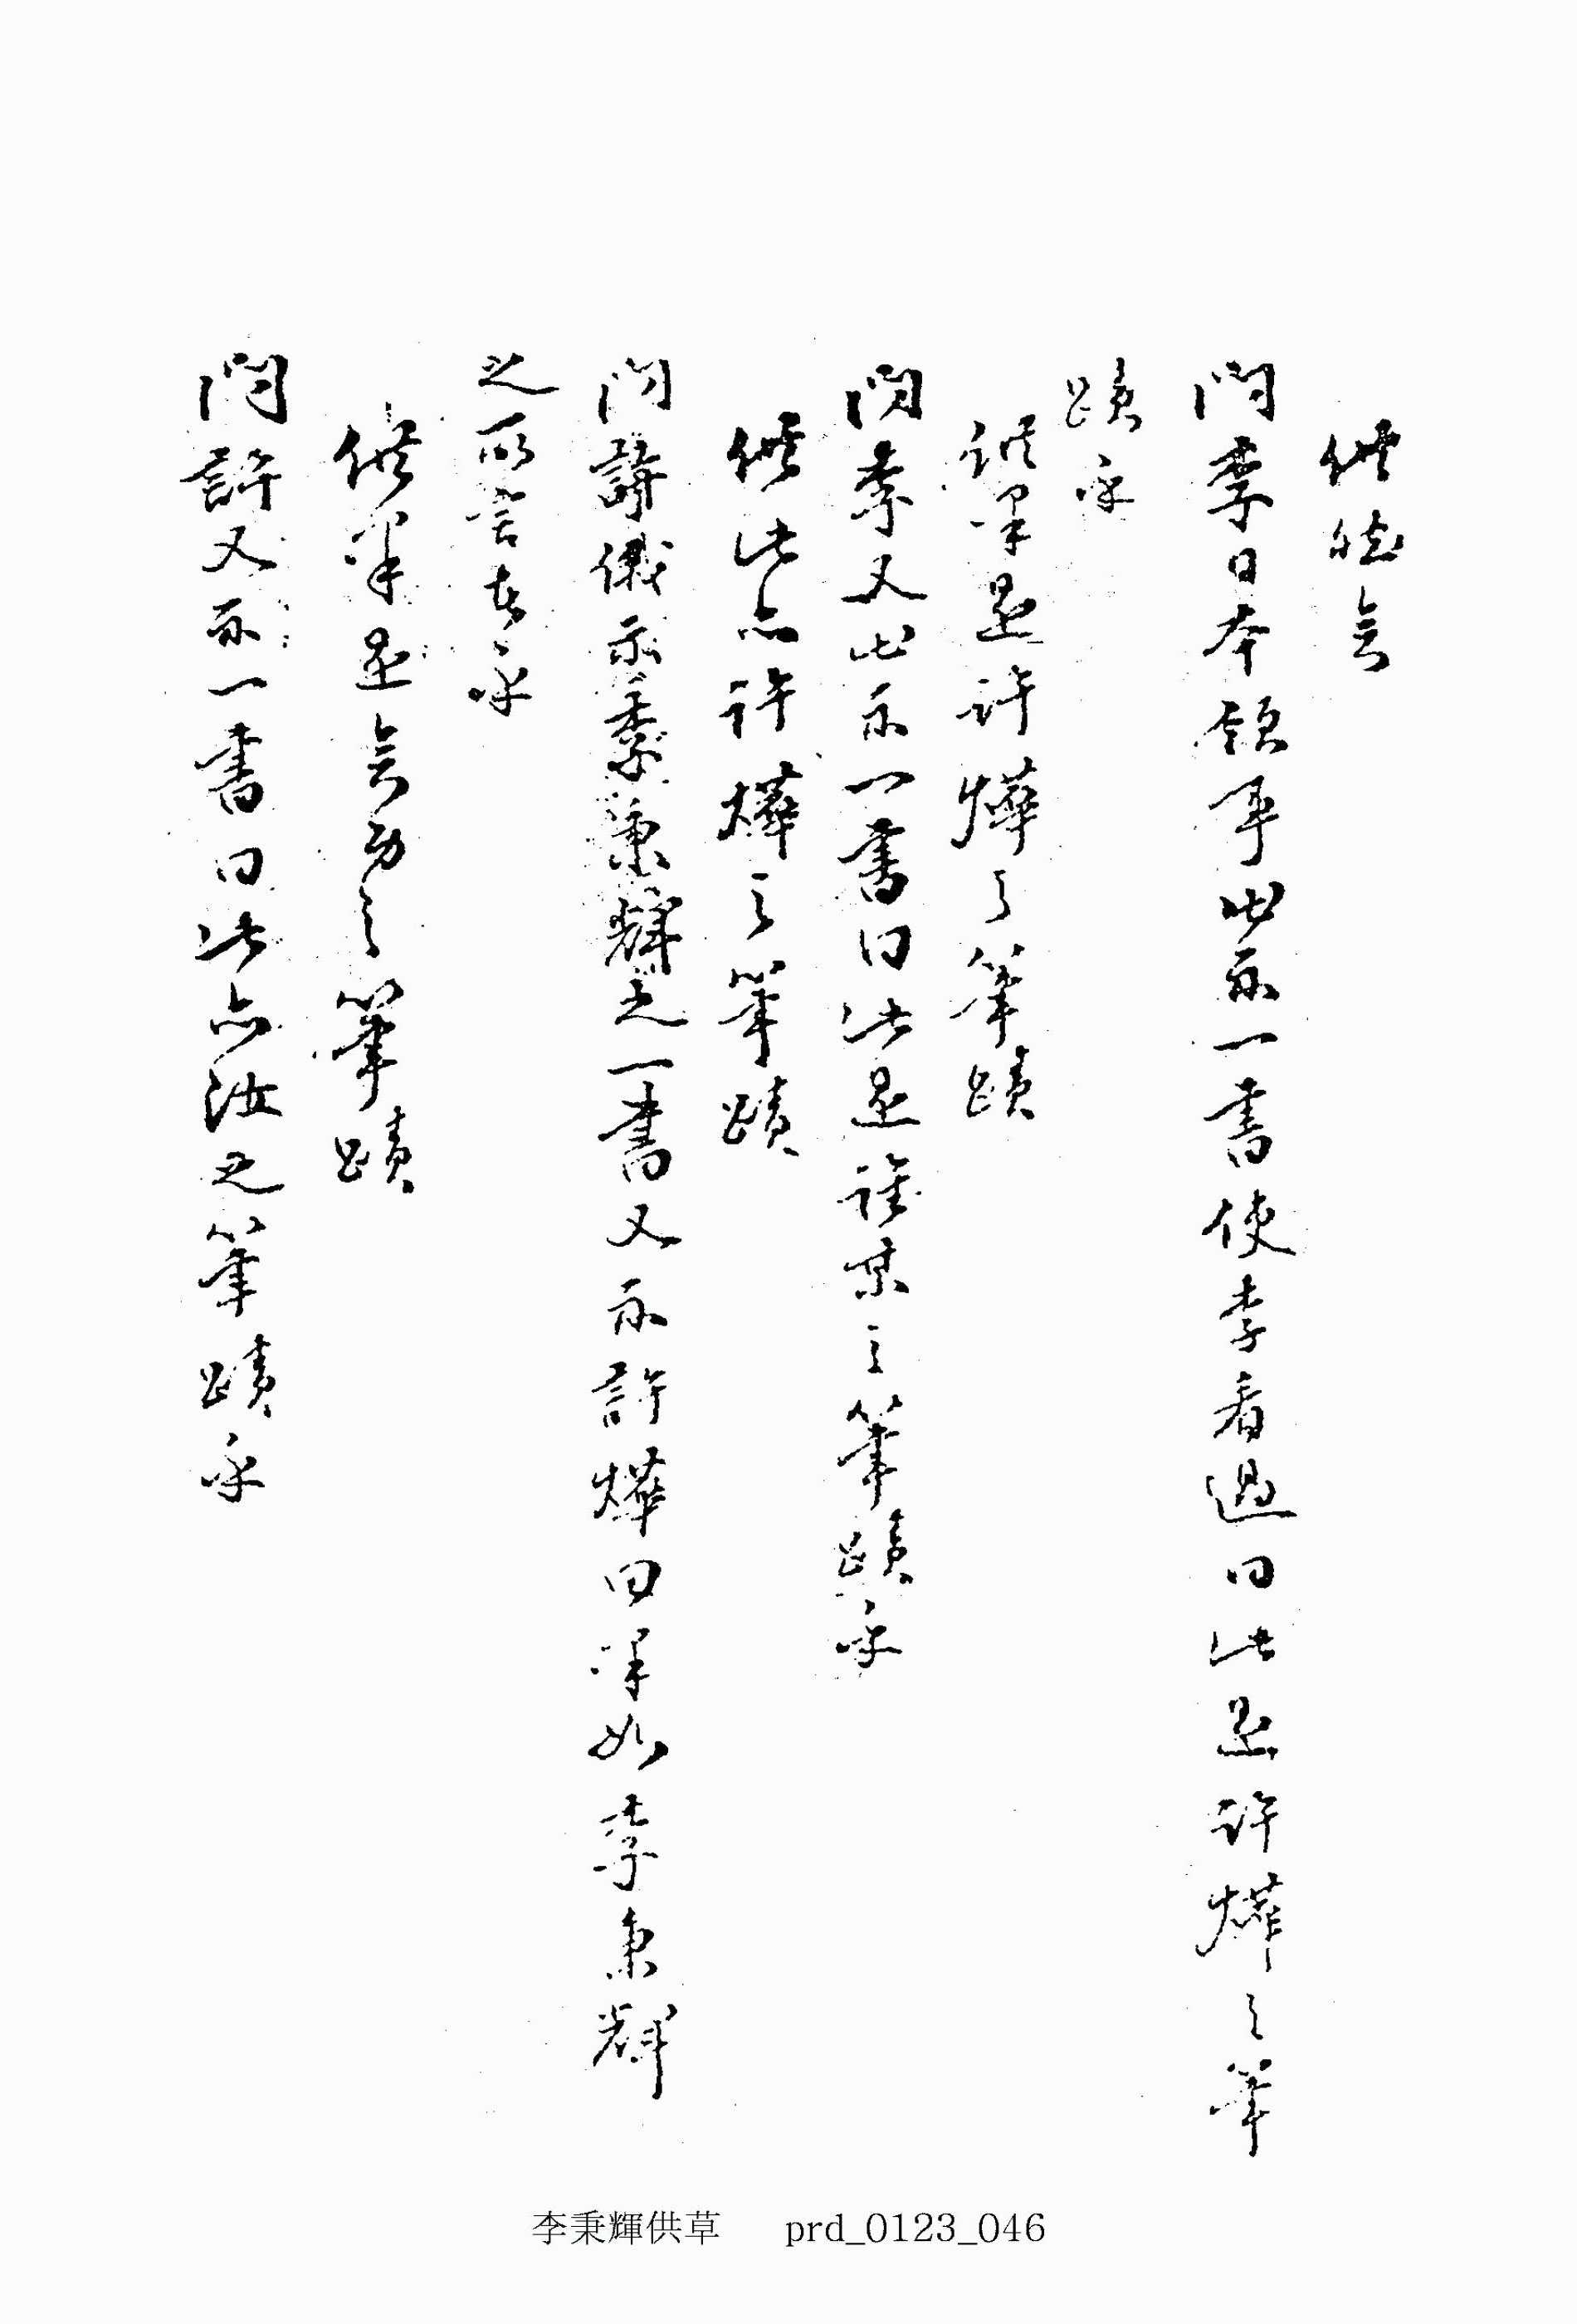 供 矣
問李日本領事出示一書使李看過曰此是許燁之筆
蹟乎
供果是許燁之筆蹟
問李又出示一書曰此是誰某之筆蹟乎
供此亦許燁之筆蹟
問 示李秉輝之一書又示許燁曰果如李秉輝
之所言者乎
供果是矣身之筆蹟
問許又示一書曰此亦汝之筆蹟乎
李秉輝供草 prd_0123_046